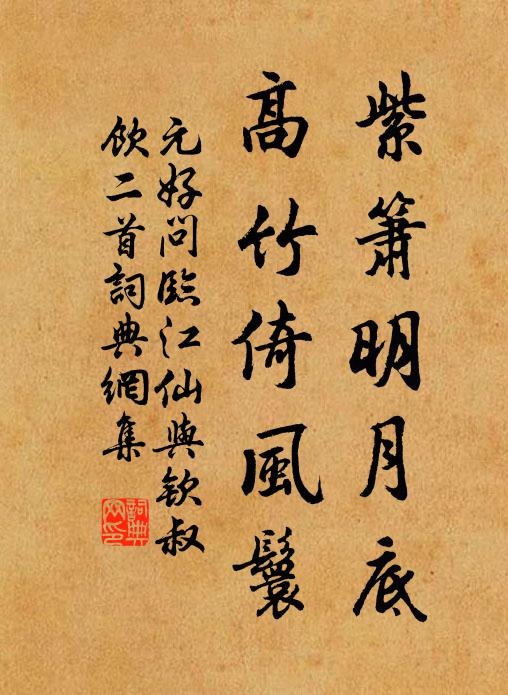 紫簫明月底
高竹倚風鬟
元好問臨江仙與欽叔
飲二首詞典網集
詞典
网印